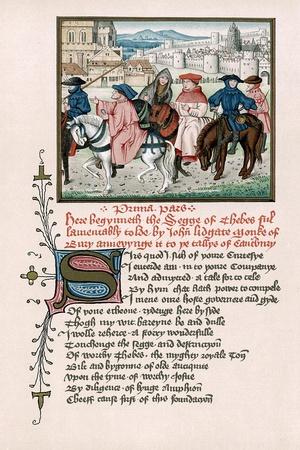 Prima Pars
here begynneth the Segge of Thebes ful
lamentably tolde by John Lidgate Monke of
Bury anneyynge it to ye tallys of Caunterbury
Sirs quod I sith of youre Curtesye
I entrede am in to youre Companye
And admytted a tale for to tele
By hym that hath power to compele
I mene oure hoste governere and gyde
Of yow echone rydenge here by syde
Thogh my wit bareyne be and dulle
I wolle reherce a storye wondirfulle
Touchenge the segge and destruccyon
Of worthy Thebes the myghty royale Ton
Bilt and bygonne of olde antiquite
Upon the tyme of worthy Josue
By diligence of kynge Amphion
Cheeff cause first of this foundacion